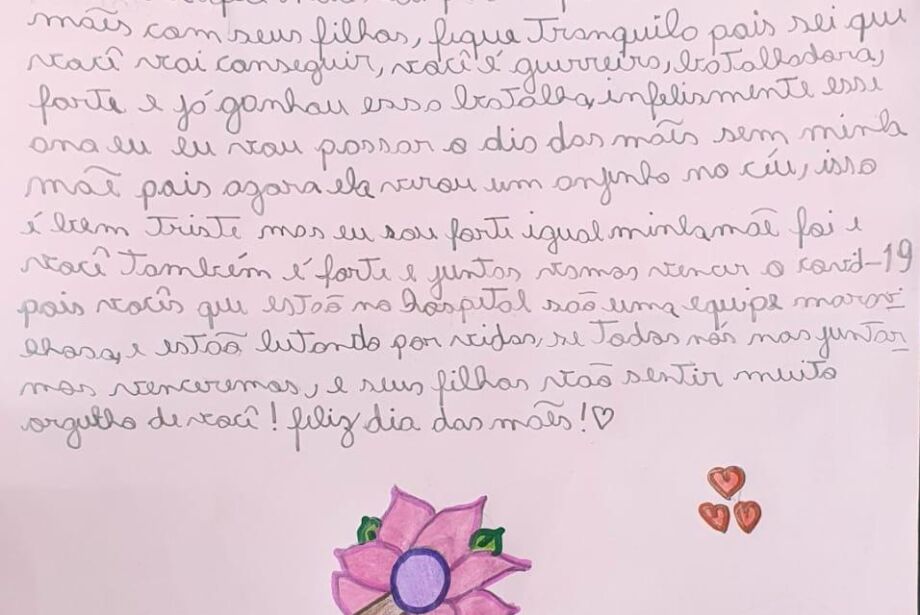 mães com seus filhos, fique Tranquilo pois sei que
você vai conseguir, você é guerreira, batalhadora,
forte e já ganhou essa batalha, infelismente esse
ano eu eu vou passar o dia das mães sem minha
mãe pois agora ela virou um anjinho no céu, isso
é bem Triste mas eu sou forte igual minha mãe foi e
você Também é forte e juntos vamos vencer o covid-19
pois vocês que estão no hospital são uma equipe maravi
lhosa, e estão lutando por vidas, se Todos nós nos juntar
mos venceremos, e seus filhos vão sentir muito
orgulho de você! feliz dia das mães!♡